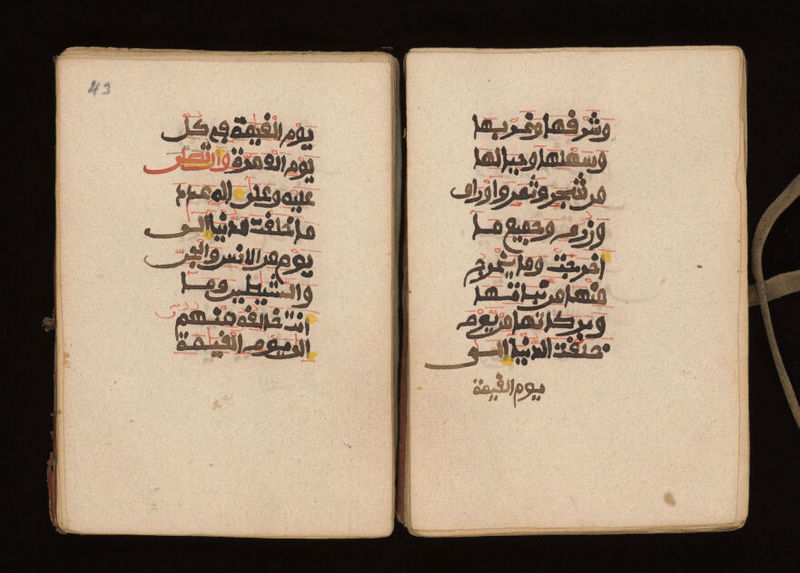 وشرقها وغربها
وسهلها وجبالها
من شجر وثمر واوراق
وزرع وجميع ما
اخرجت وما يخرج
منها من نباتها
وبركاتها من يوم
خلقت الدنيا الى
يوم القيمة
43
يوم القيمة في كل
يوم الف مرة وان تصلى
عليه وعلى اله عدد
ما خلقت الى
يوم من الانس والجن
والشيطين وما
انت خالقه منهم
الى يوم القيمة